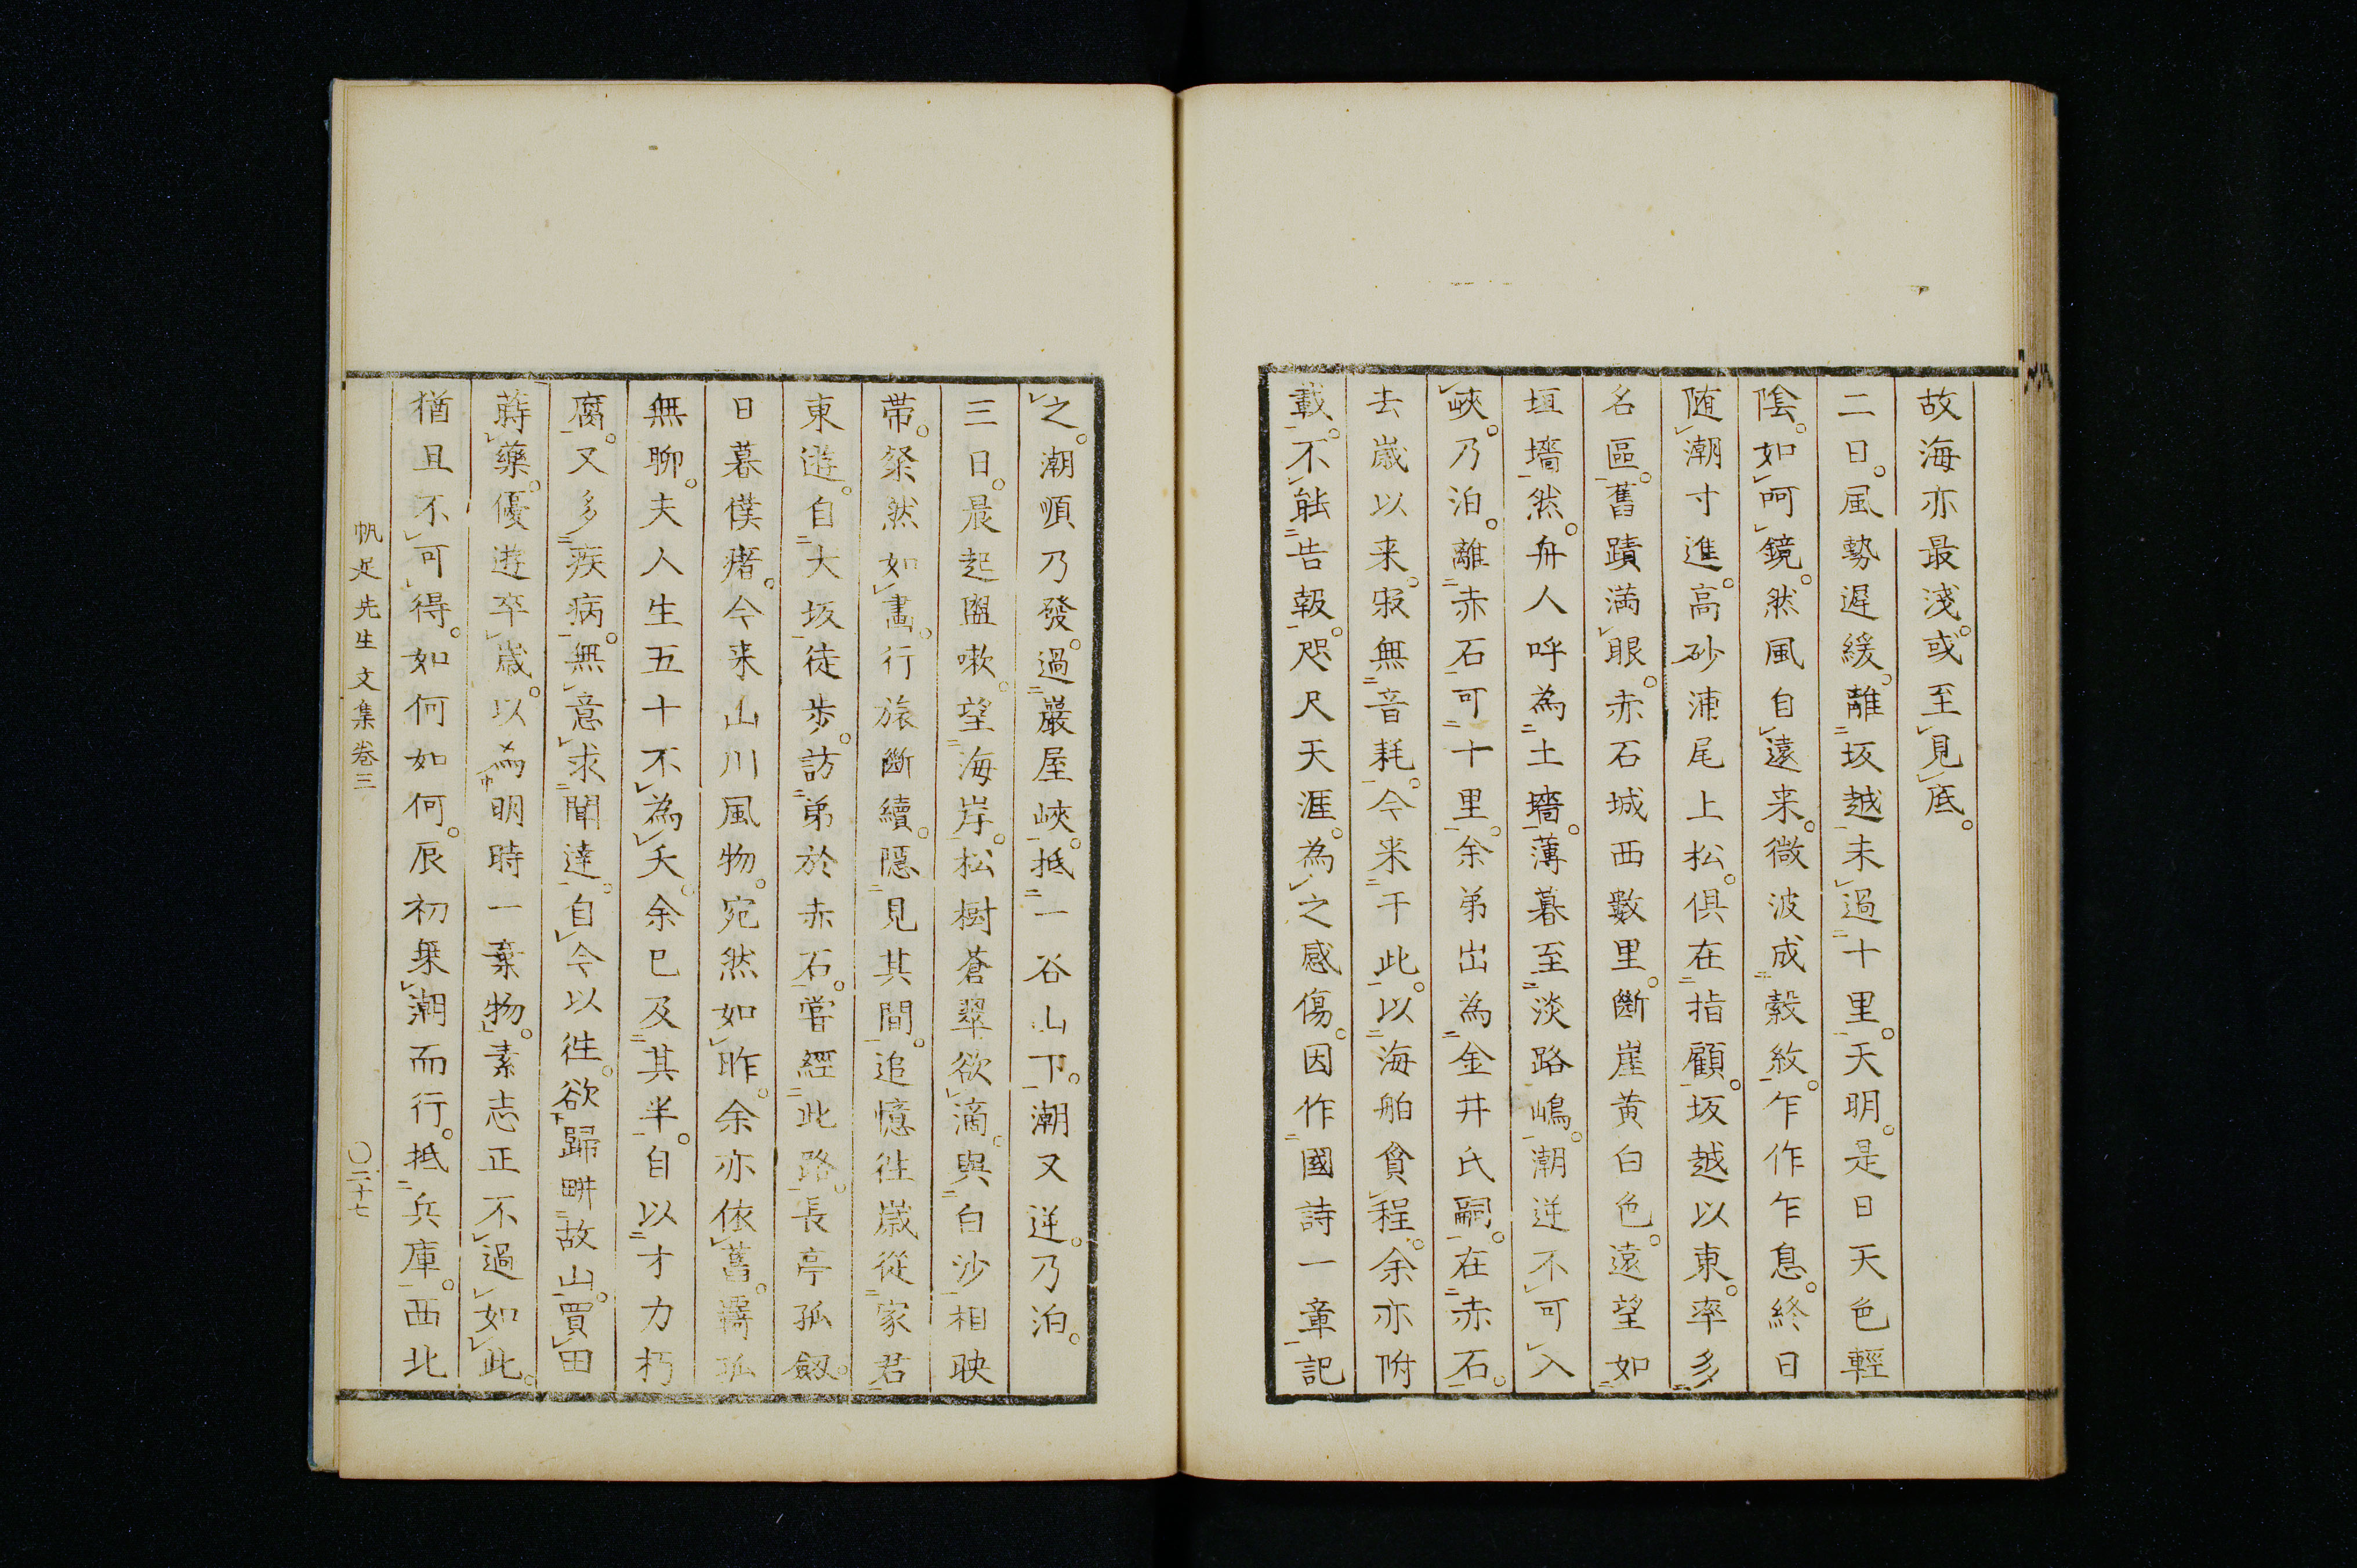 故海亦最淺。或至見底。
二日。風勢遲緩。離坂越未過十里。天明。是日天色輕
陰。如呵鏡。然風自遠来。微波成縠紋。乍作乍息。終日
随潮寸進。高砂浦尾上松。俱在指顧。坂越以東。率多
名區。舊蹟満眼。赤石城西數里。斷崖黄白色。遠望如
垣墻然。舟人呼為土墻。薄暮至淡路嶋。潮逆不可入
峽。乃泊。離赤石可十里。余弟出為金井氏嗣。在赤石。
去歳以来。寂無音耗。今来于此。以海舶貪程。余亦附
載。不能告報。咫尺天涯。為之感傷。因作國詩一章記
之。潮順乃發。過巖屋峽。抵一谷山下。潮又逆。乃泊。
三日。晨起盥嗽。望海岸。松樹蒼翠欲滴。與白沙相映
帯。粲然如畵。行旅斷續。隱見其間。追憶徃歳從家君
東遊。自大坂徒歩。訪弟於赤石。嘗經此路。長亭孤劔。
日暮僕瘏。今来山川風物。宛然如昨。余亦依舊。羇孤
無聊。夫人生五十不為夭。余已及其半。自以才力朽
腐。又多疾病。無意求聞達。自今以徃。欲歸畊故山。買田
蒔藥。優遊卒歳。以為明時一棄物。素志正不過如此。
猶且不可得。如何如何。辰初乗潮而行。抵兵庫。西北
帆足先生文集卷三
〇二十七